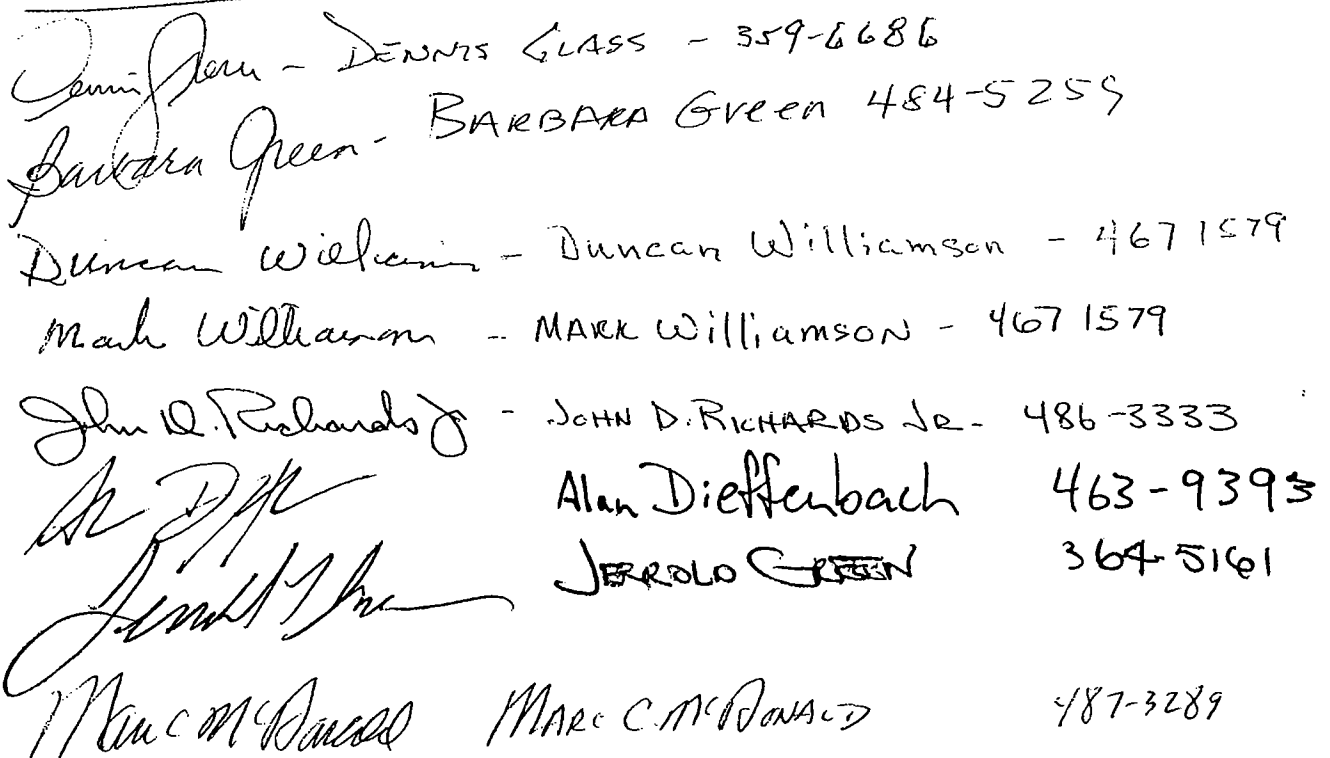 Dennis Glass - DENNIS GLASS - 359-6686
Barbara Green - BARBARA Green 484-5259
Duncan Williamson - Duncan Williamson - 467 1579
Mark Williamson - MARK Williamson - 467 1579
John D. Richards Jr - JOHN D. RICHARDS JR. - 486-3333
Alan Dieffenbach 463-9393
JERROLD GREEN 364-5161
Marc McDonald MARC C. McDONALD 487-3289